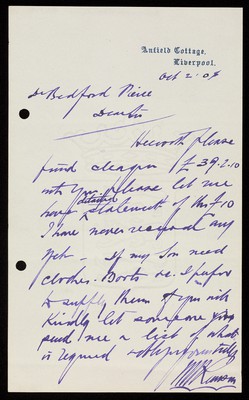 Anfield Cottage,
Liverpool.
Oct 2. 08
Dr Bedford Pierce
Dear Sir
Herewith please
find cheque £39.2.10
will you please let me
have detailed statement of this £10
I have never received any
yet - If my Son need
clothes. Boots &c. I prefer
to supply them if you will
Kindly let someone
send me a list of what
is required